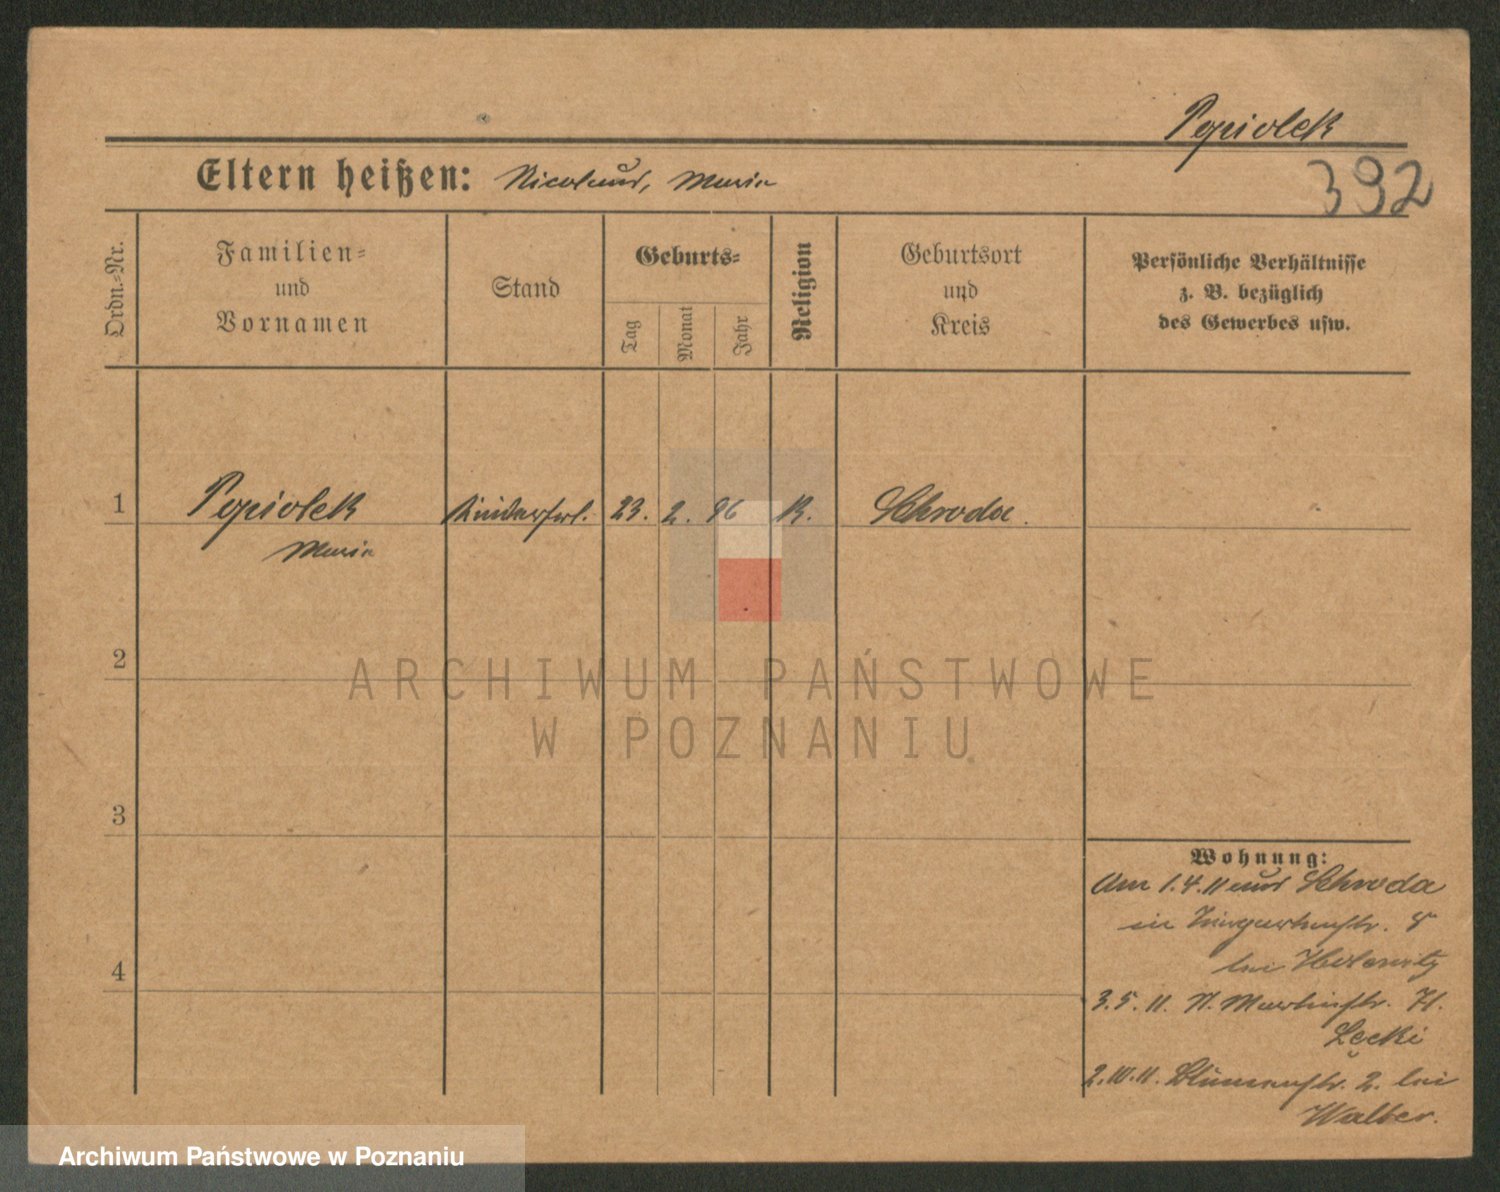 Popiolek
Eltern heißen: Nicolaus, Maria
392
Ordn.-Nr.
Familien-
und
Vornamen
Stand
Geburts-
Tag
Monat
Jahr
Religion
Geburtsort
und
Kreis
Persönliche Verhältnisse
z. B. bezüglich
des Gewerbes usw.
1
Popiolek Kinderfrl. 23. 2. 96 K. Schroda.
Maria
2
ARCHIWUM PAŃSTWOWE
W POZNANIU
3
Wohnung:
Am 1.4.11 aus Schroda
in Tiergartenstr. 8
bei
3.5.11. St. Martinstr. 71.
Lęcki
4
2.10.11. Blumenstr. 2. bei
Walter.
Archiwum Państwowe w Poznaniu